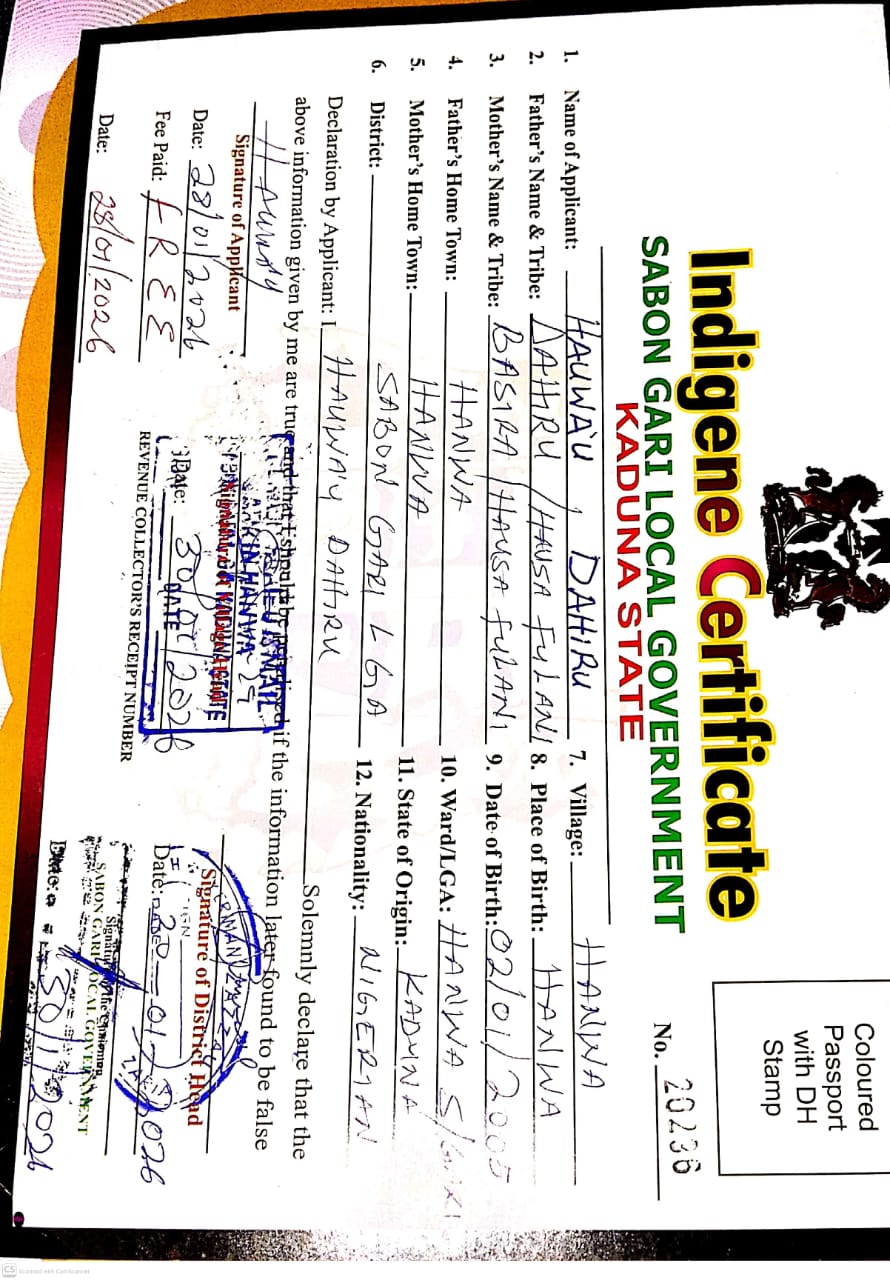 Indigene Certificate
SABON GARI LOCAL GOVERNMENT
KADUNA STATE
Coloured
Passport
with DH
Stamp
No. 20236
1. Name of Applicant: HAUWA'U , DAHIRU
2. Father's Name & Tribe: DAHIRU / HAUSA FULANI
3. Mother's Name & Tribe: BASIRA / HAUSA FULANI
4. Father's Home Town: HANWA
5. Mother's Home Town: HANWA
6. District: SABON GARI LGA
7. Village: HANWA
8. Place of Birth: HANWA
9. Date of Birth: 02/01/2005
10. Ward/LGA: HANWA S/GARI
11. State of Origin: KADUNA
12. Nationality: NIGERIAN
Declaration by Applicant: I HAUWA'U DAHIRU Solemnly declare that the
above information given by me are true and that I should be if the information later found to be false
HAUWA'U
Signature of Applicant
Date: 28/01/2026
Fee Paid: FREE
Date: 28/01/2026
HANWA
KADUNA STATE
Date: 30/01/2026
DATE
REVENUE COLLECTOR'S RECEIPT NUMBER
Signature of District Head
SIGN
Date: 30-01-2026
DATE
SABON GARI LOCAL GOVERNMENT
Date: 30/1/2026
CS Scanned with CamScanner